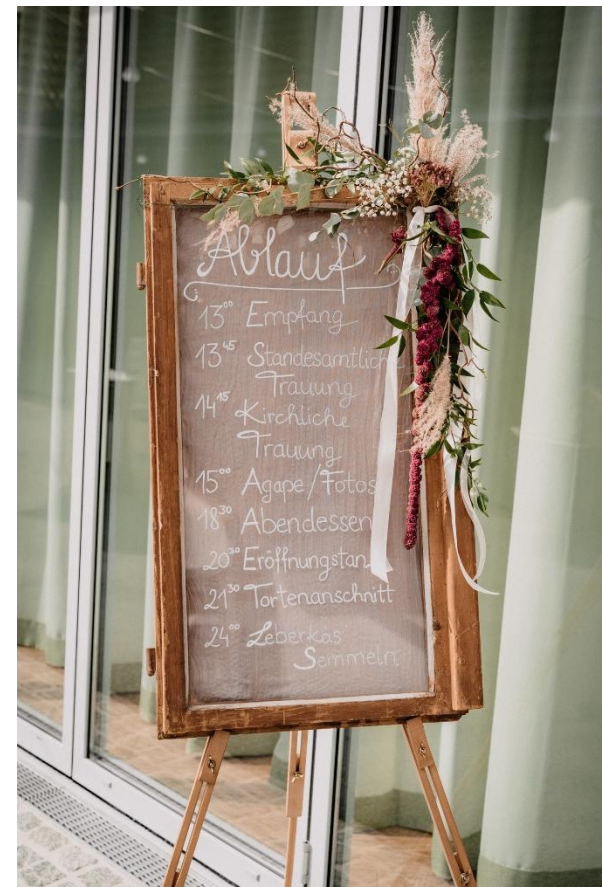 Ablauf
13⁰⁰ Empfang
13⁴⁵ Standesamtliche
Trauung
14¹⁵ Kirchliche
Trauung
15⁰⁰ Agape/Fotos
18³⁰ Abendessen
20³⁰ Eröffnungstanz
21³⁰ Tortenanschnitt
24⁰⁰ Leberkäs
Semmeln